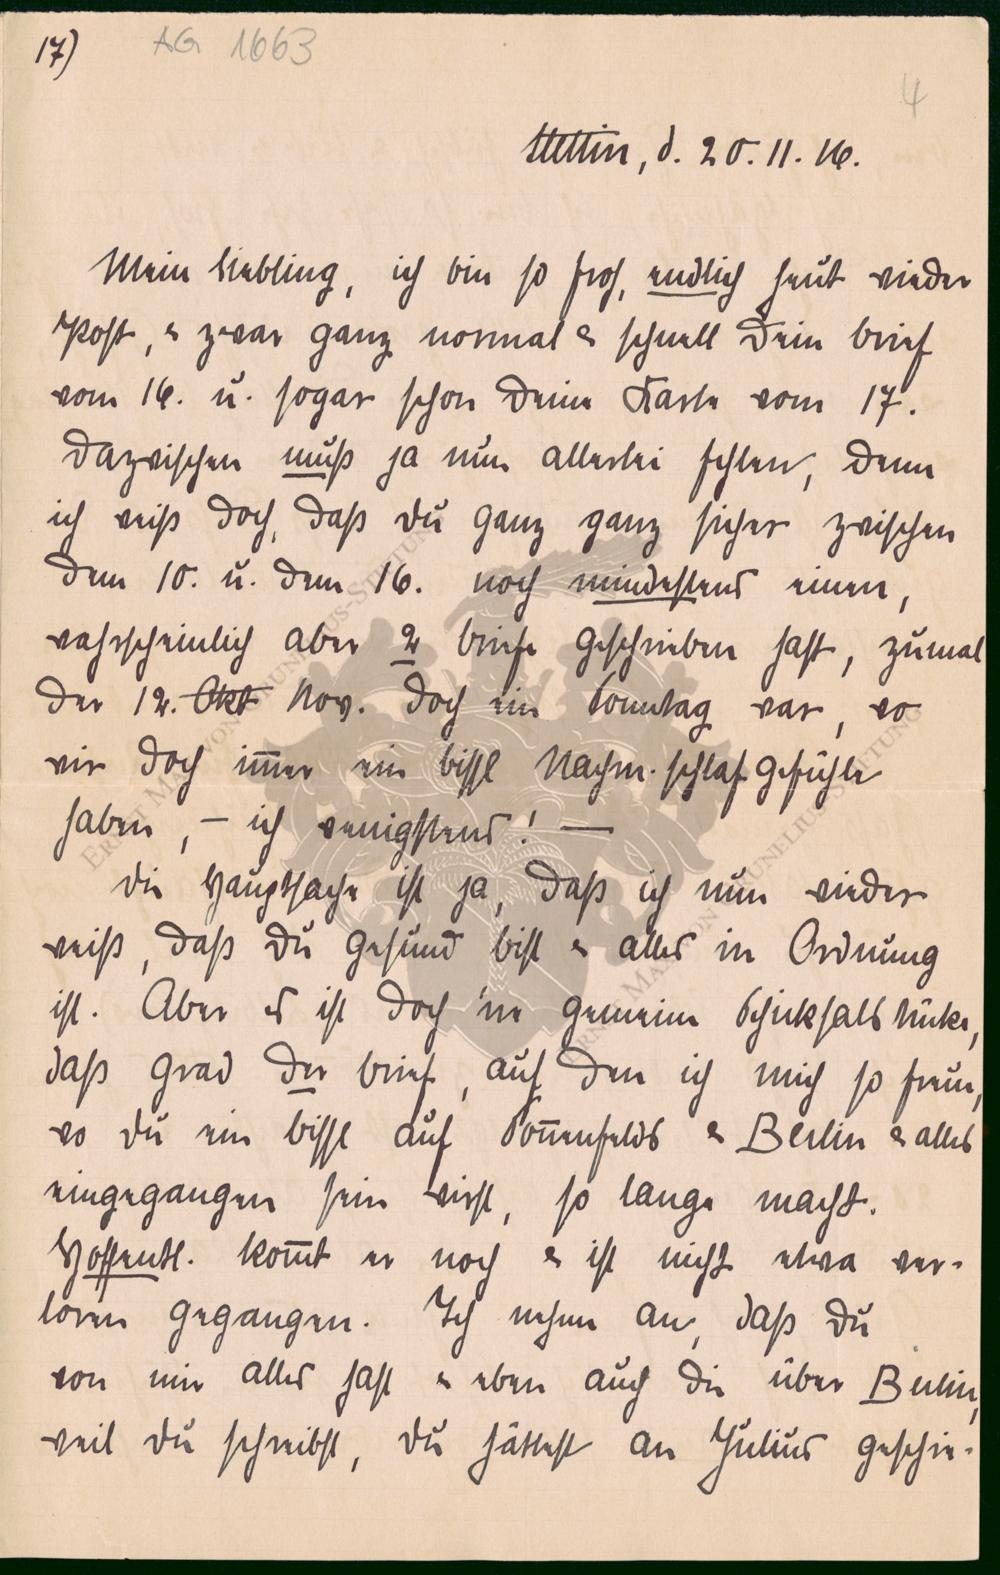 17)
AG 1663
4
Stettin, d. 20.11.16.
Mein Liebling, ich bin so froh, endlich heut wieder
Post, & zwar ganz normal & schnell Dein Brief
vom 16. u. sogar schon Deine Karte vom 17.
Dazwischen muß ja nun allerlei fehlen, denn
ich weiß doch, daß Du ganz ganz sicher zwischen
dem 10. u. dem 16. noch mindestens einen,
wahrscheinlich aber 2 Briefe geschrieben hast, zumal
der 12. Okt Nov. doch ein Sonntag war, wo
wir doch im̅er ein bissl Nachm. schlafgefühle
haben, – ich wenigstens! —
Die Hauptsache ist ja, daß ich nun wieder
weiß, daß Du gesund bist & alles in Ordnung
ist. Aber es ist doch 'ne gemeine Schicksalstücke,
daß grad der Brief, auf den ich mich so freue,
wo Du ein bissl auf Son̅enfelds & Berlin & alles
eingegangen sein wirst, so lange macht.
Hoffentl. kom̅t er noch & ist nicht etwa ver-
loren gegangen. Ich nehme an, daß Du
von mir alles hast & eben auch die über Berlin,
weil Du schreibst, Du hättest an Julius geschrie-
ERNST MAX VON GRUNELIUS-STIFTUNG
ERNST MAX VON GRUNELIUS-STIFTUNG